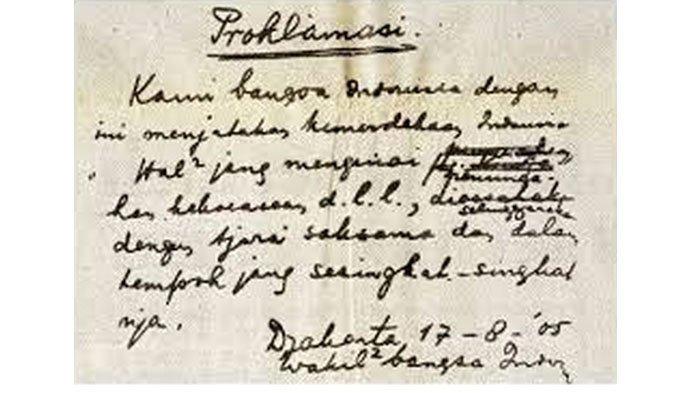 Proklamasi.
Kami bangsa Indonesia dengan
ini menjatakan kemerdekaan Indonesia
Hal² jang mengenai
kekoeasaan d.l.l.,
selenggaraka
dengan tjara saksama dan dalam
tempoh jang sesingkat-singkat
nja.
Djakarta 17-8-'05
Wakil² bangsa Indon